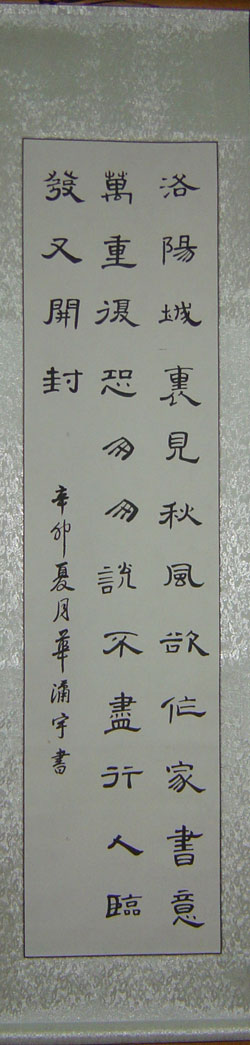 洛陽城裏見秋風欲作家書意
萬重復恐匆匆說不盡行人臨
發又開封
辛卯夏月華滿宇書